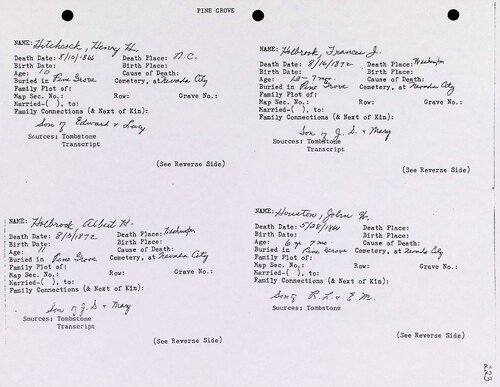 PINE GROVE
NAME: Hitchcock, Henry H.
Death Date: 8/10/1866 Death Place: N.C.
Birth Date: Birth Place:
Age: 10 Cause of Death:
Buried in Pine Grove Cemetery, at Nevada City
Family Plot of:
Map Sec. No.: Row: Grave No.:
Married-( ), to:
Family Connections (& Next of Kin):
Son of Edward & Lucy
Sources: Tombstone
Transcript
(See Reverse Side)
NAME: Holbrook, Frances J.
Death Date: 8/16/1872 Death Place: Washington
Birth Date: Birth Place:
Age: 7 mo. Cause of Death:
Buried in Pine Grove Cemetery, at Nevada City
Family Plot of:
Map Sec. No.: Row: Grave No.:
Married-( ), to:
Family Connections (& Next of Kin):
Son of J. S. & Mary
Sources: Tombstone
Transcript
(See Reverse Side)
NAME: Holbrook, Albert H.
Death Date: 8/3/1872 Death Place: Washington
Birth Date: Birth Place:
Age: 11 Cause of Death:
Buried in Pine Grove Cemetery, at Nevada City
Family Plot of:
Map Sec. No.: Row: Grave No.:
Married-( ), to:
Family Connections (& Next of Kin):
Son of J. S & Mary
Sources: Tombstone
Transcript
(See Reverse Side)
NAME: Houston, John W.
Death Date: 5/28/1864 Death Place:
Birth Date: Birth Place:
Age: 6 yr. 7 mo. Cause of Death:
Buried in Pine Grove Cemetery, at Nevada City
Family Plot of:
Map Sec. No.: Row: Grave No.:
Married-( ), to:
Family Connections (& Next of Kin):
Son of R. L. & E. M.
Sources: Tombstone
Transcript
(See Reverse Side)
223